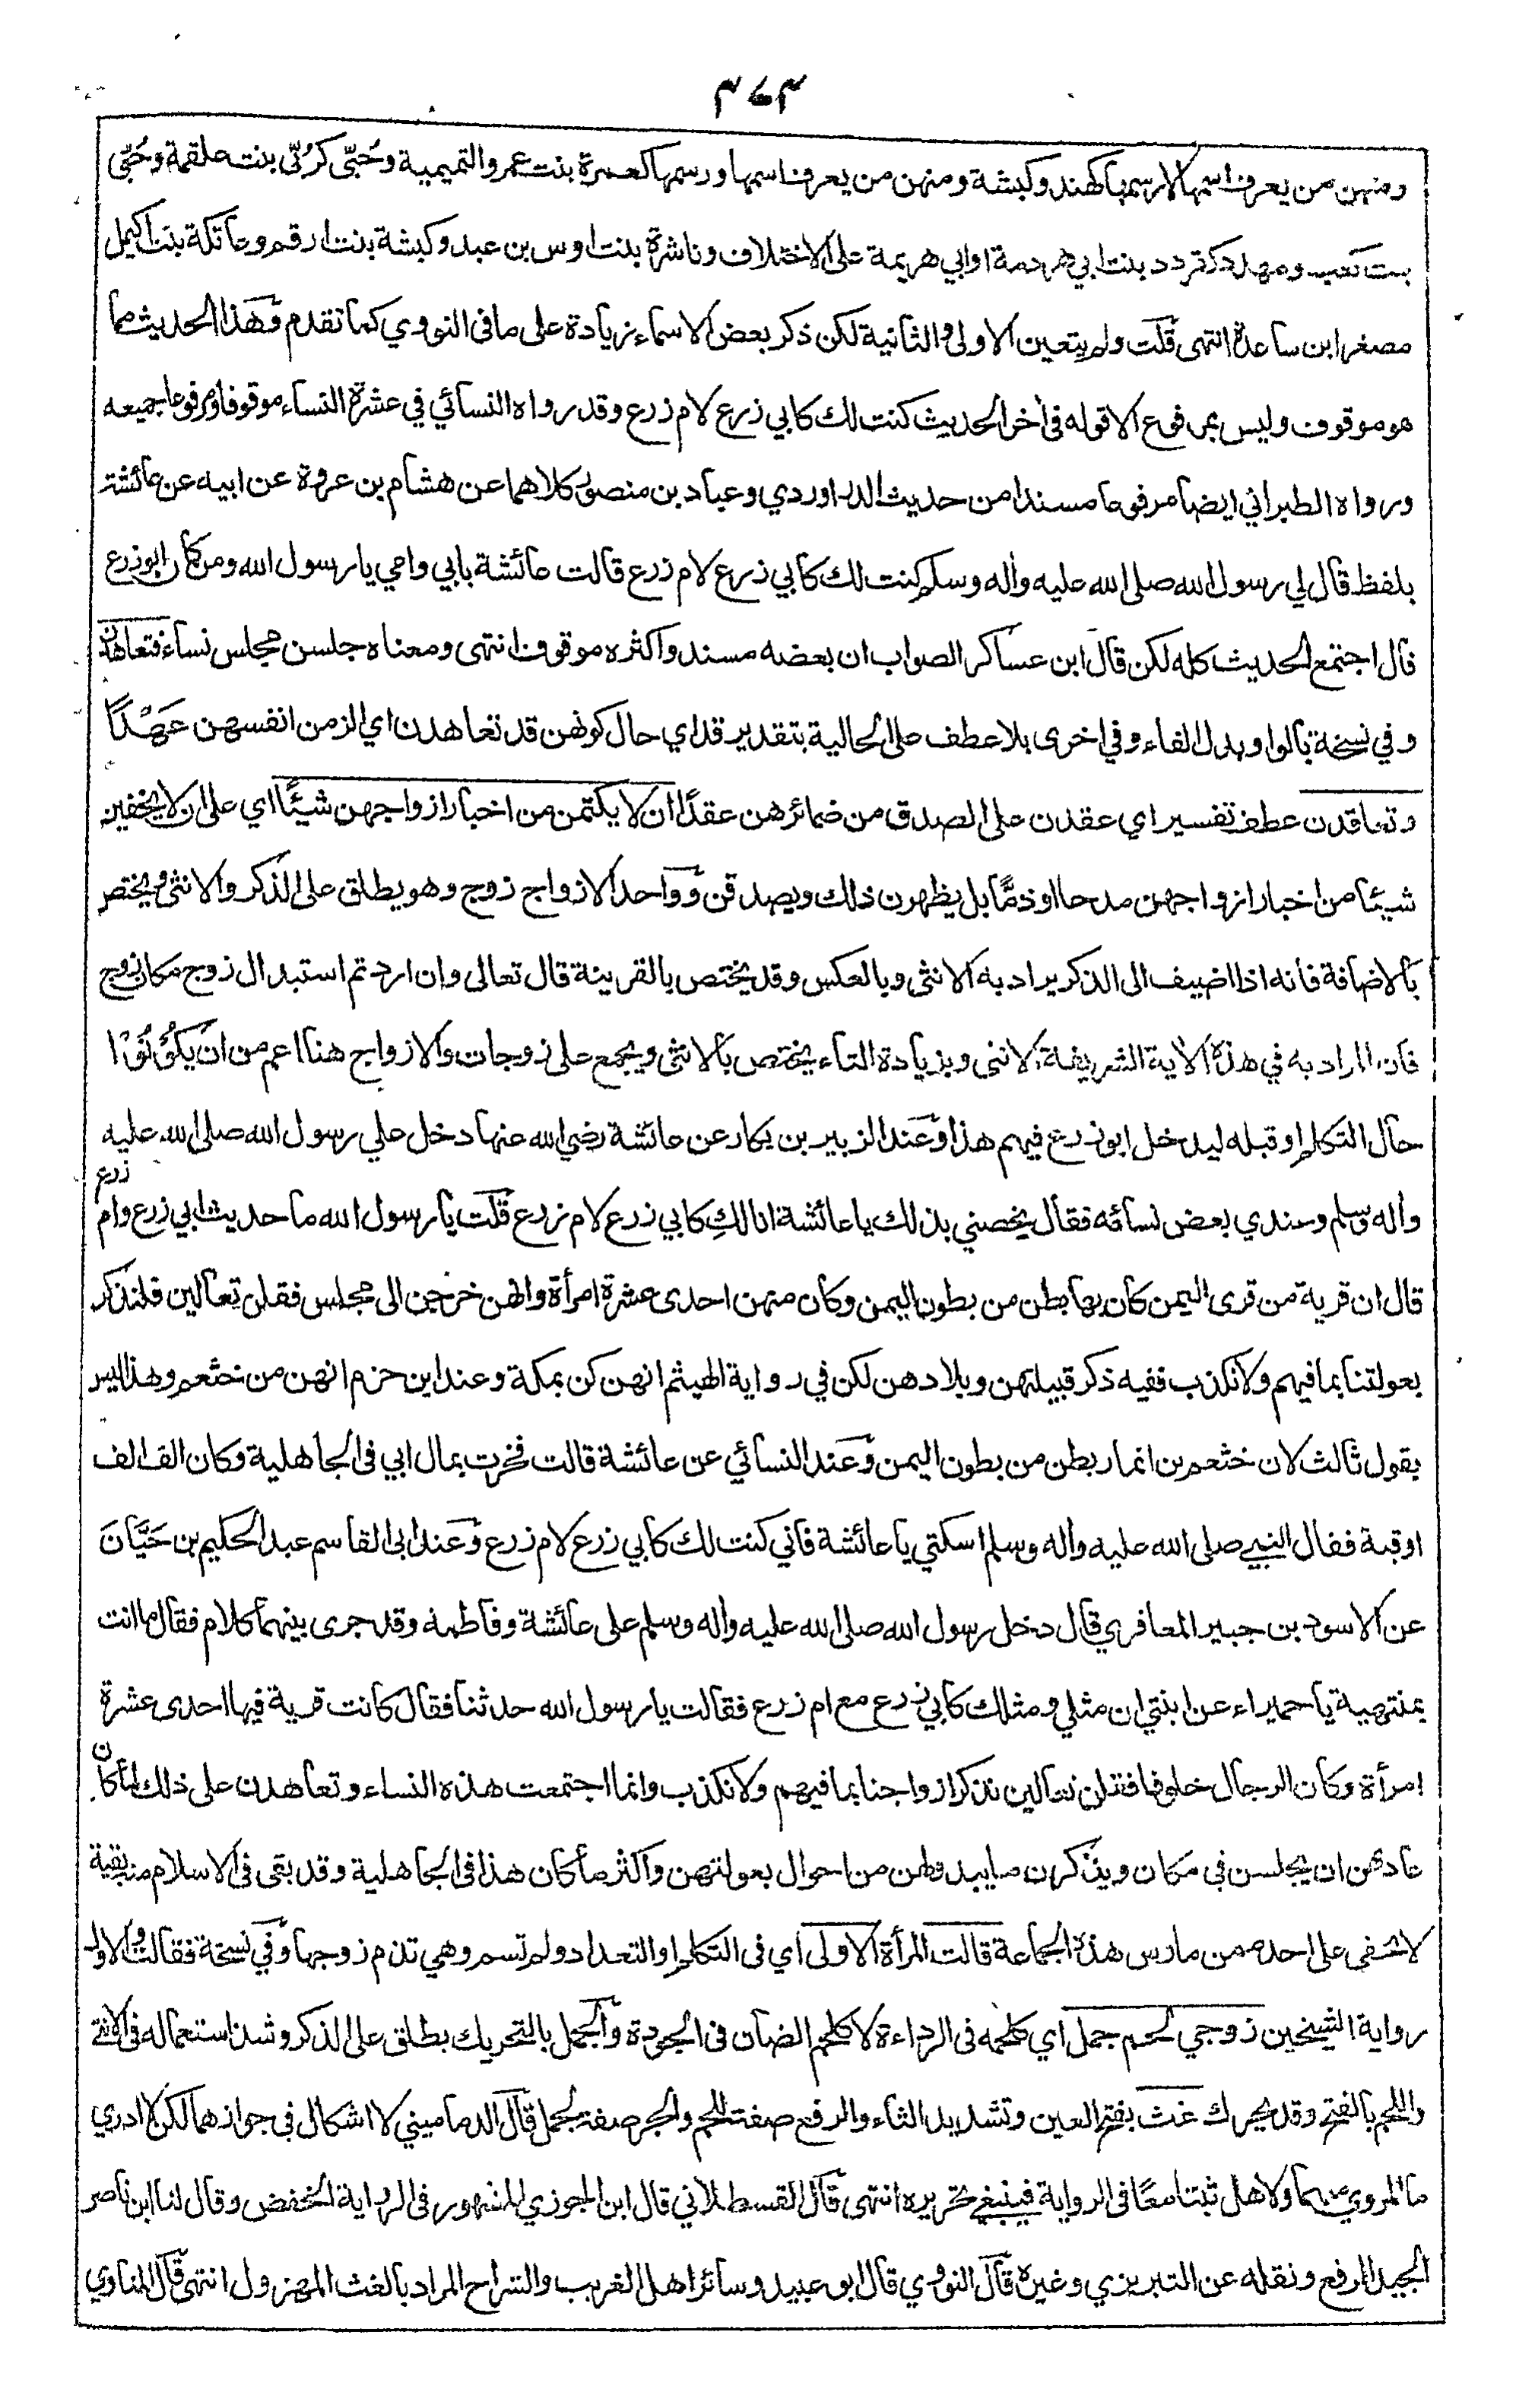 ٣٧٣
ومنهن من يعرف اسمها لا رسمها كهند وكبشة ومنهن من يعرف اسمها ورسمها كعمرة بنت عمرو التميمية وحُبّى كرُبّى بنت علقمة وحُبّى
بنت كعب ومهدد كتردد بنت ابي هردمة او ابي هريمة على الاختلاف وناشرة بنت اوس بن عبد وكبشة بنت ارقم وعاتكة بنت اكيمل
مصغرا ابن ساعدة انتهى قلت ولم يتعين الاولى والثانية لكن ذكر بعض الاسماء زيادة على ما في النووي كما تقدم وهذا الحديث مما
هو موقوف وليس بمرفوع الا قوله في أخر الحديث كنت لك كابي زرع لام زرع وقد رواه النسائي في عشرة النساء موقوفا ومرفوعا جميعه
ورواه الطبراني ايضا مرفوعا مسندا من حديث الدراوردي وعباد بن منصور كلاهما عن هشام بن عروة عن ابيه عن عائشة
بلفظ قال لي رسول الله صلى الله عليه واله وسلم كنت لك كابي زرع لام زرع قالت عائشة بابي وامي يا رسول الله ومن كان ابو زرع
قال اجتمع الحديث كله لكن قال ابن عساكر الصواب ان بعضه مسند واكثره موقوف انتهى ومعناه جلسن مجلس نساء فتعاهدن
وفي نسخة بالواو بدل الفاء وفي اخرى بلا عطف على الحالية بتقدير قد اي حال كونهن قد تعاهدن اي الزمن انفسهن عَهْدًا
وتعاقدن عطف تفسير اي عقدن على الصدق من ضمائرهن عقدًا ان لا يكتمن من اخبار ازواجهن شيئًا اي على ان لا يخفين
شيئا من اخبار ازواجهن مدحا او ذمًّا بل يظهرن ذلك ويصدقن وواحد الازواج زوج وهو يطلق على الذكر والانثى ويختص
بالاضافة فانه اذا اضيف الى الذكر يراد به الانثى وبالعكس وقد يختص بالقرينة قال تعالى وان اردتم استبدال زوج مكان زوج
فان المراد به في هذه الأية الشريفة الانثى وبزيادة التاء يختص بالانثى ويجمع على زوجات والازواج هنا اعم من ان يكُوْنُوْا
حال التكلم او قبله ليدخل ابو زرع فيهم هذا وعند الزبير بن بكار عن عائشة رضي الله عنها دخل علي رسول الله صلى الله عليه
واله وسلم وعندي بعض نسائه فقال يخصني بذلك يا عائشة انا لكِ كابي زرع لام زرع قلت يا رسول الله ما حديث ابي زرع وام زرع
قال ان قرية من قرى اليمن كان بها بطن من بطون اليمن وكان منهن احدى عشرة امرأة وانهن خرجن الى مجلس فقلن تعالين فلنذكر
بعولتنا بما فيهم ولا نكذب ففيه ذكر قبيلتهن وبلادهن لكن في رواية الهيثم انهن كن بمكة وعند ابن حزم انهن من خثعم وهذا ليس
بقول ثالث لان خثعم بن انمار بطن من بطون اليمن وعند النسائي عن عائشة قالت فخرت بمال ابي في الجاهلية وكان الف الف
اوقية فقال النبي صلى الله عليه واله وسلم اسكتي يا عائشة فاني كنت لك كابي زرع لام زرع وعند ابي القاسم عبد الحكيم بن حَيَّانَ
عن الاسود بن جبير المعافري قال دخل رسول الله صلى الله عليه واله وسلم على عائشة وفاطمة وقد جرى بينهما كلام فقال ما انت
بمنتهية يا حميراء عن ابنتي ان مثلي ومثلك كابي زرع مع ام زرع فقالت يا رسول الله حدثنا فقال كانت قرية فيها احدى عشرة
امرأة وكان الرجال خلوفا فقلن تعالين نذكر ازواجنا بما فيهم ولا نكذب وانما اجتمعت هذه النساء وتعاهدن على ذلك لما كان
عادتهن ان يجلسن في مكان ويذكرن ما يبدو لهن من احوال بعولتهن واكثر ما كان هذا في الجاهلية وقد بقي في الاسلام منه بقية
لا تخفى على احد ممن مارس هذه الجماعة قالت المرأة الاولى اي في التكلم او التعداد ولم تسم وهي تذم زوجها وفي نسخة فقالت والاولى
رواية الشيخين زوجي لحم جمل اي كلحمه في الرداءة لا كلحم الضان في الجودة والجمل بالتحريك يطلق على الذكر وشذ استعماله في الانثى
واللحم بالفتح وقد يحرك غث بفتح الغين وتشديد الثاء والرفع صفة للحم والجر صفة لجمل قال الدماميني لا اشكال في جوازهما لكن لا ادري
ما المروي منهما ولا هل ثبتا معًا في الرواية فينبغي تحريره انتهى قال القسطلاني قال ابن الجوزي المشهور في الرواية الخفض وقال لنا ابن ناصر
الجيد الرفع ونقله عن التبريزي وغيره قال النووي قال ابو عبيد وسائر اهل الغريب والشراح المراد بالغث المهزول انتهى قال المناوي